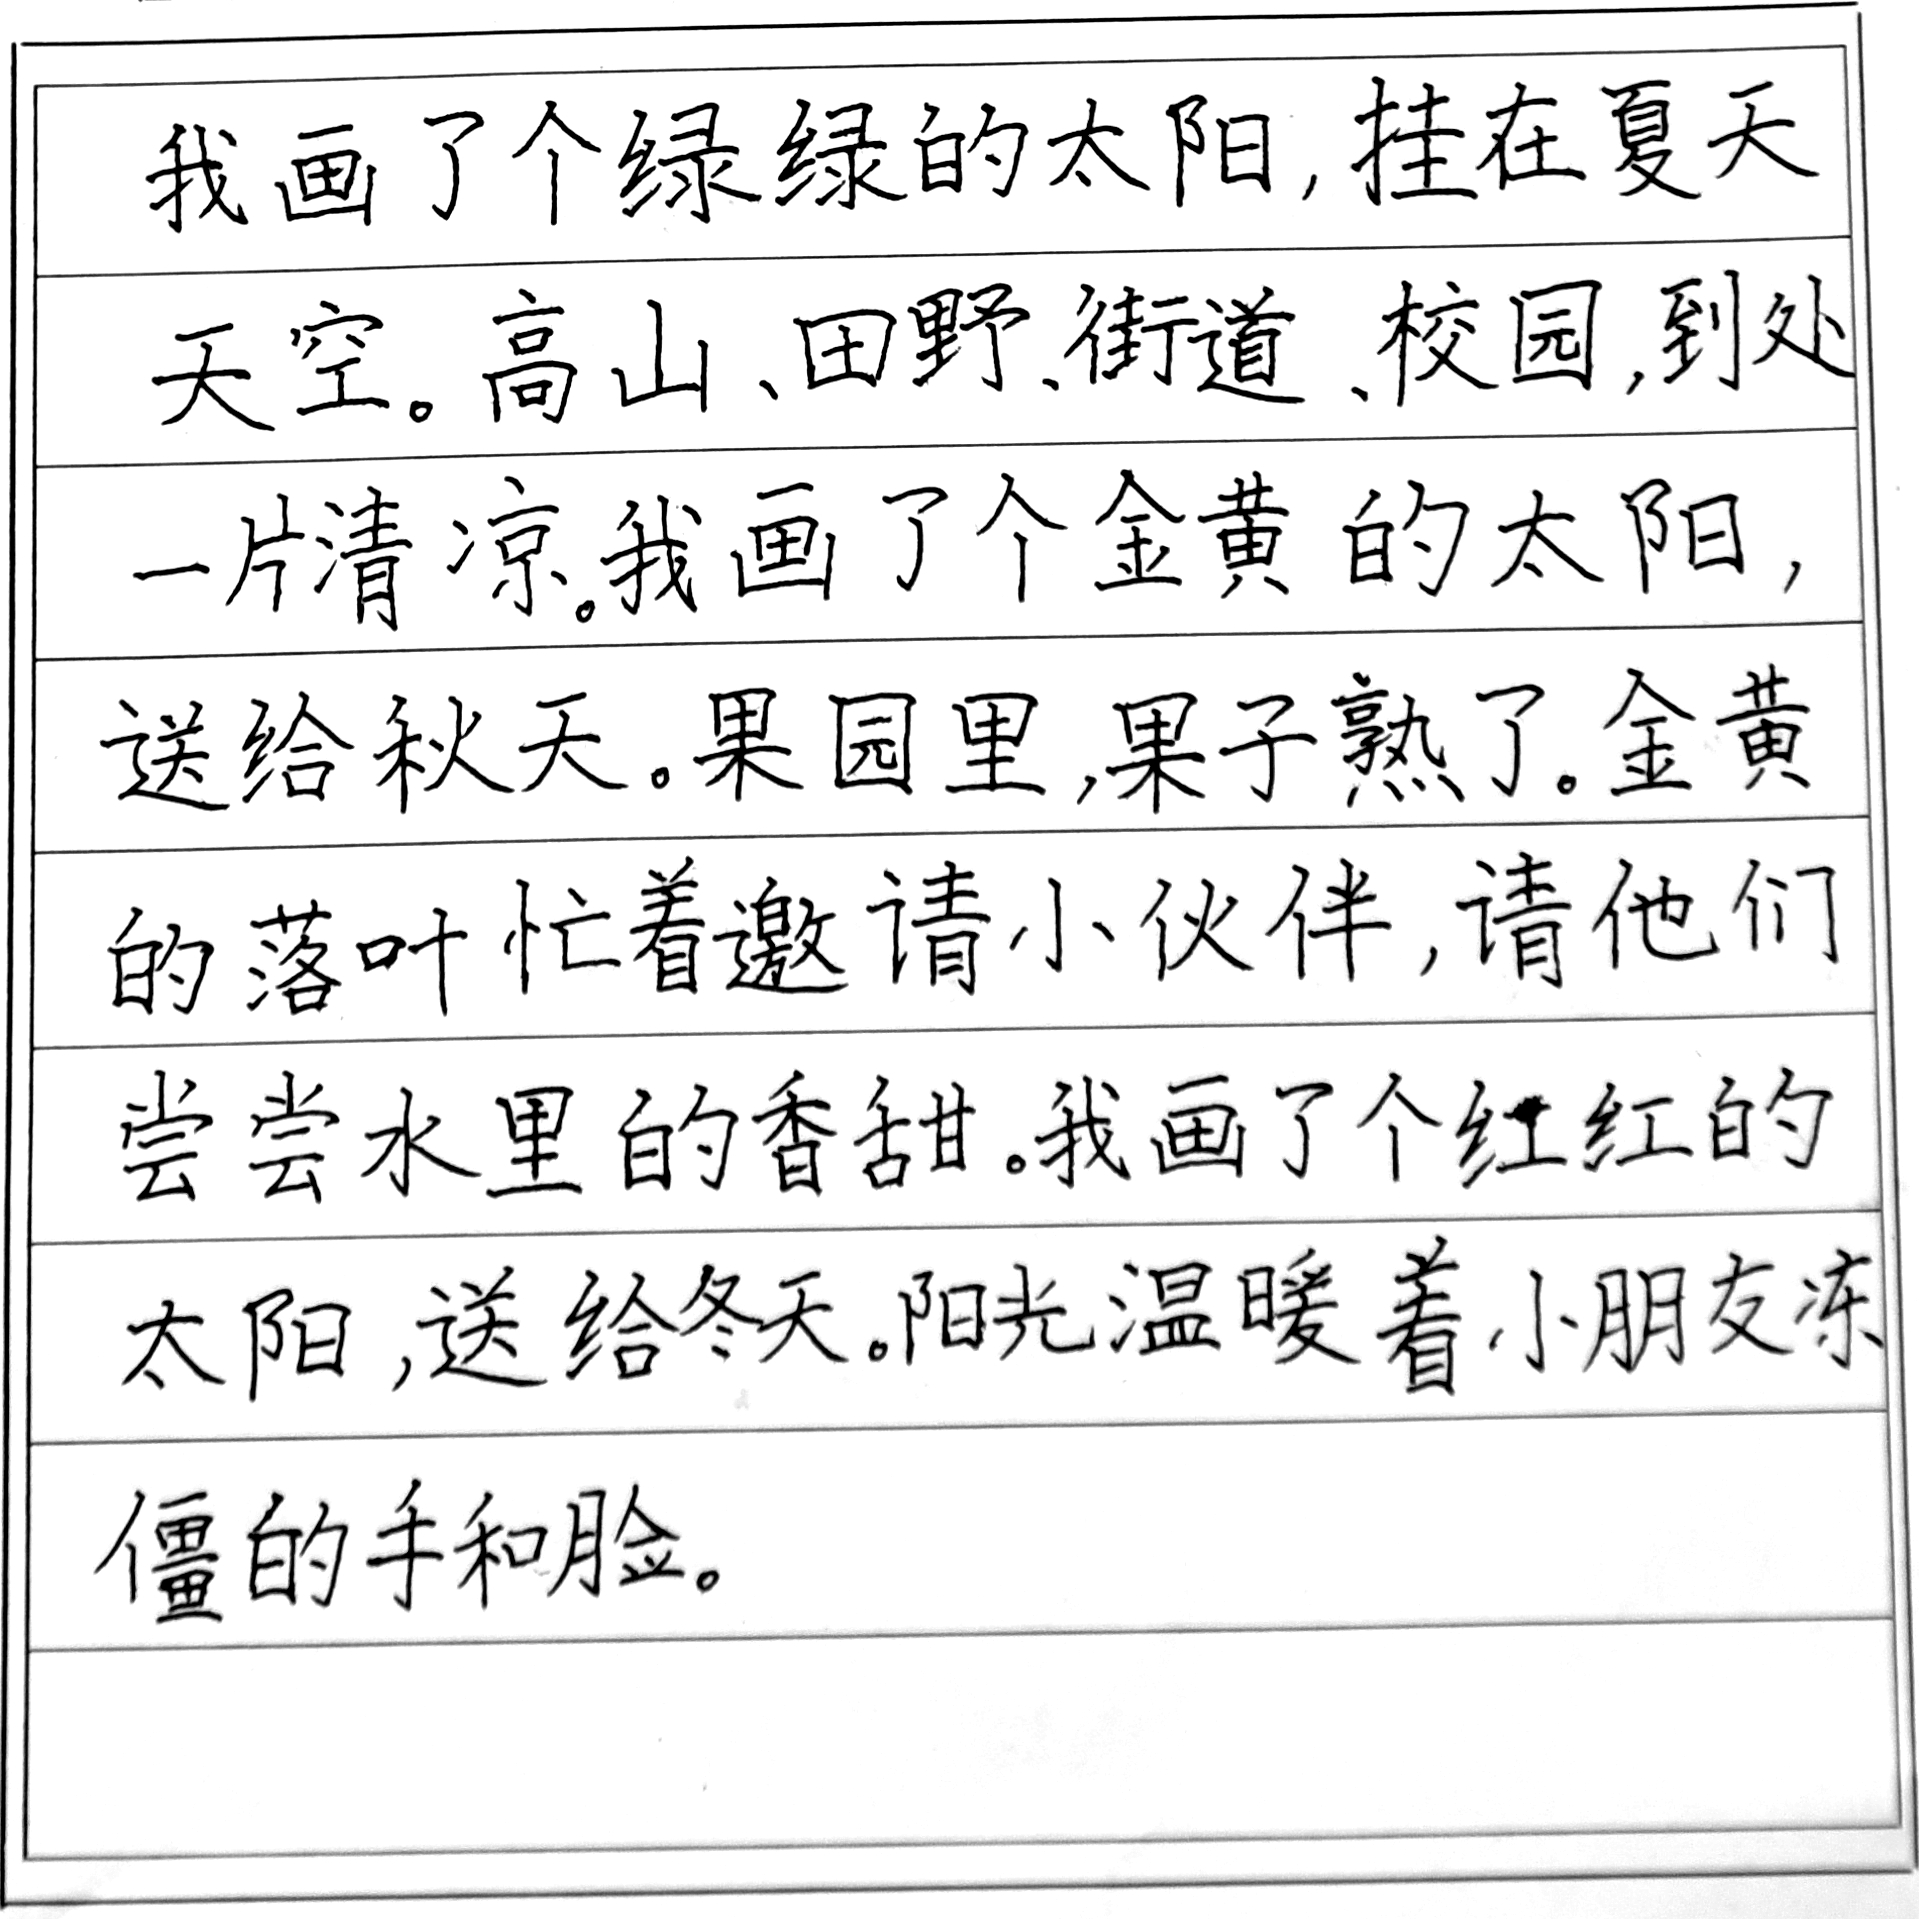 我画了个绿绿的太阳,挂在夏天
天空。高山、田野、街道、校园,到处
一片清凉。我画了个金黄的太阳,
送给秋天。果园里,果子熟了。金黄
的落叶忙着邀请小伙伴,请他们
尝尝水里的香甜。我画了个红红的
太阳,送给冬天。阳光温暖着小朋友冻
僵的手和脸。